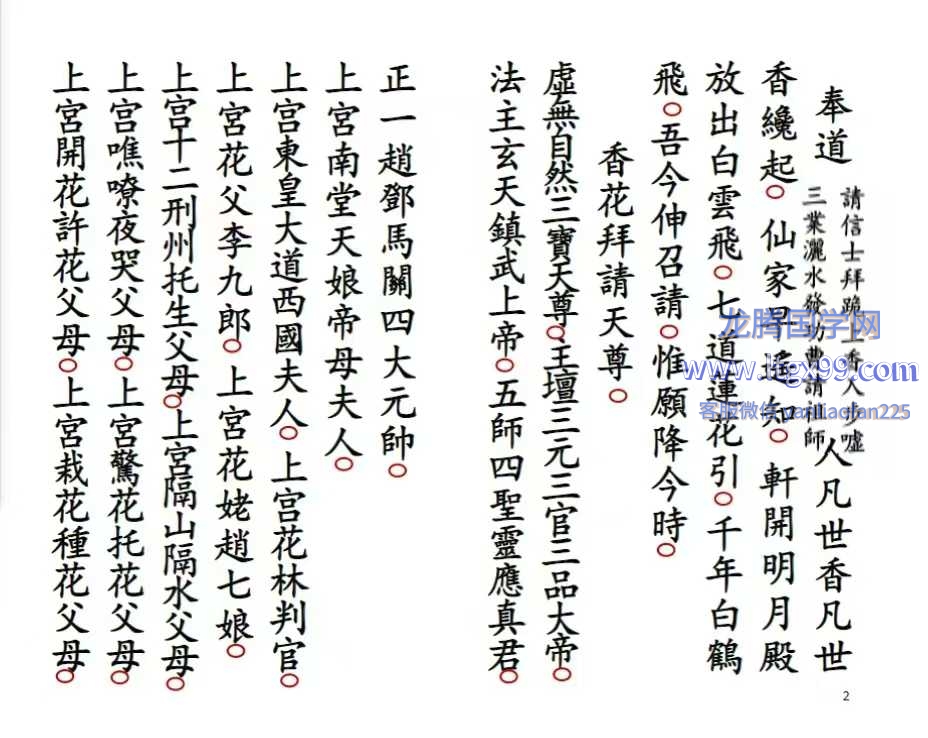 奉道
請信士拜跪上香人步噓
三業灑水發功曹請祖師
人凡世香凡世
香纔起○仙家早遙知○軒開明月殿
放出白雲飛○七道蓮花引○千年白鶴
飛○吾今伸召請○惟願降今時○
香花拜請天尊○
虛無自然三寶天尊○主壇三元三官三品大帝○
法主玄天鎮武上帝○五師四聖靈應真君○
正一趙鄧馬關四大元帥○
上宮南堂天娘帝母夫人○
上宮東皇大道西國夫人○上宮花林判官○
上宮花父李九郎○上宮花姥趙七娘○
上宮十二刑州托生父母○上宮隔山隔水父母○
上宮噍嘹夜哭父母○上宮驚花托花父母○
上宮開花許花父母○上宮栽花種花父母○
龙腾国学网
客服微信
2